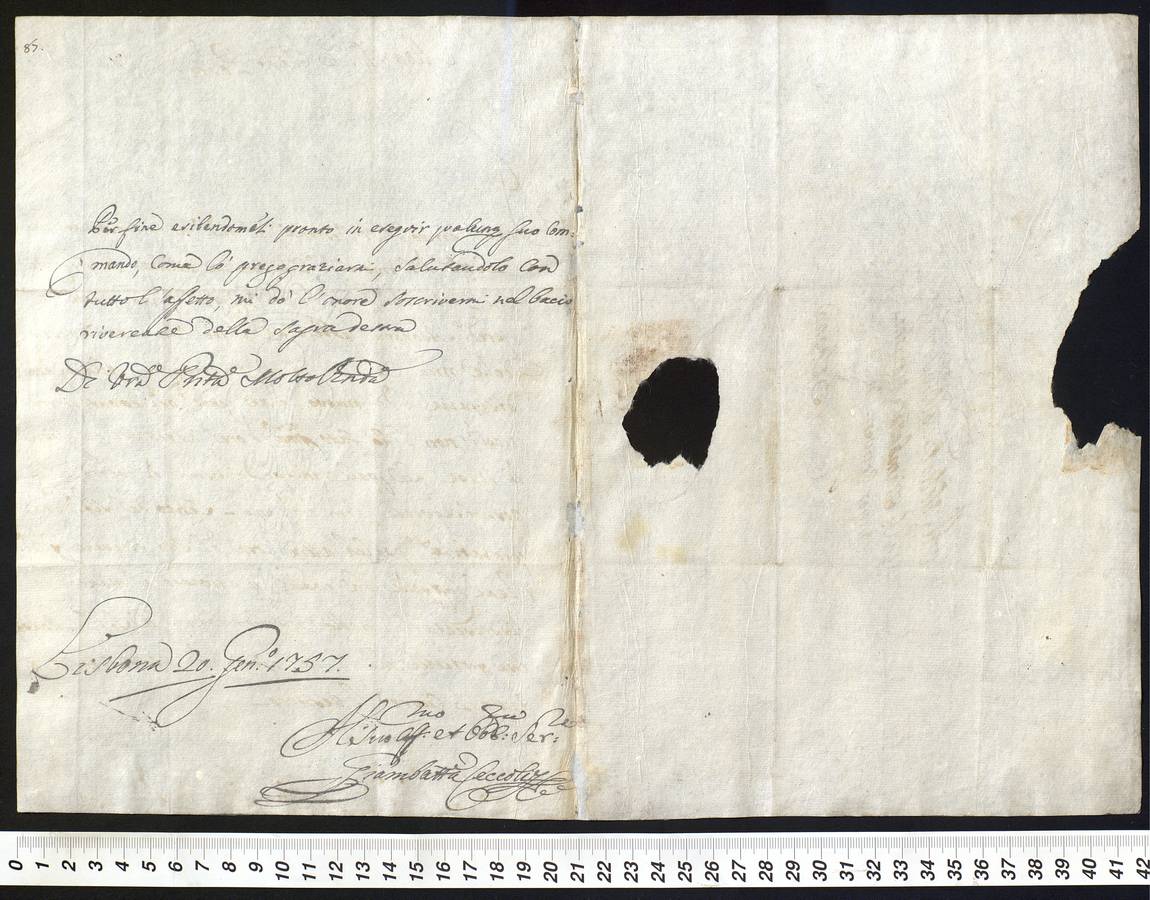 87.
Per fine esibendomeli pronto in eseguir qualunq suo com-
mando, come lo prego graziarmi, salutandolo con
tutto l'affetto, mi dò l'onore soscrivermi nel bacio
riverente della sagra destra
Di Vrã Pntã Molto Rndã
Lisbona 20. Gen.o 1757.
Il Suo Aff.mo et Obb.mo Ser.re
Giambattã
0 1 2 3 4 5 6 7 8 9 10 11 12 13 14 15 16 17 18 19 20 21 22 23 24 25 26 27 28 29 30 31 32 33 34 35 36 37 38 39 40 41 42